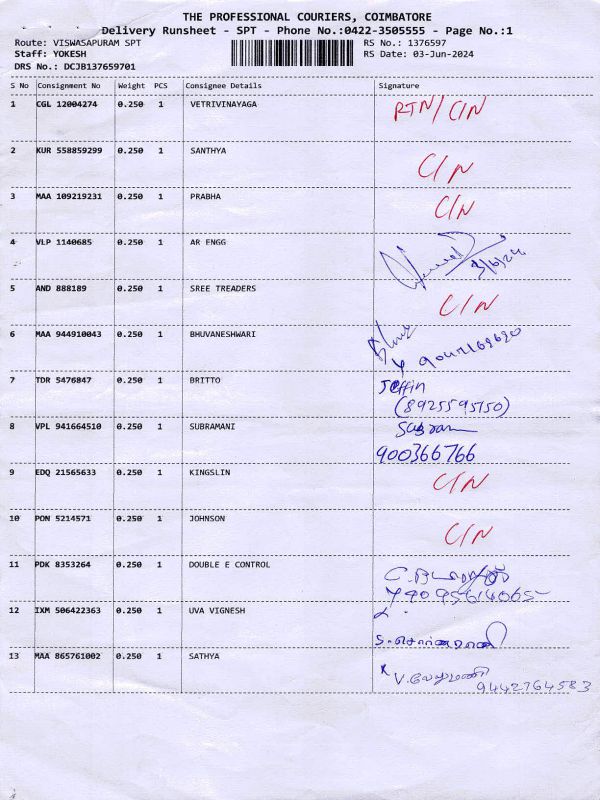 THE PROFESSIONAL COURIERS, COIMBATORE
Delivery Runsheet - SPT - Phone No.:0422-3505555 - Page No.:1
Route: VISWASAPURAM SPT RS No.: 1376597
Staff: YOKESH RS Date: 03-Jun-2024
DRS No.: DCJB137659701
S No Consignment No Weight PCS Consignee Details Signature
1 CGL 12004274 0.250 1 VETRIVINAYAGA RTN/C/N
2 KUR 558859299 0.250 1 SANTHYA C/N
3 MAA 109219231 0.250 1 PRABHA C/N
4 VLP 1140685 0.250 1 AR ENGG 3/6/24
5 AND 888189 0.250 1 SREE TREADERS C/N
6 MAA 944910043 0.250 1 BHUVANESHWARI
7 TDR 5476847 0.250 1 BRITTO Jeffin
(8925595150)
8 VPL 941664510 0.250 1 SUBRAMANI Subram
900366766
9 EDQ 21565633 0.250 1 KINGSLIN C/N
10 PON 5214571 0.250 1 JOHNSON C/N
11 PDK 8353264 0.250 1 DOUBLE E CONTROL
12 IXM 506422363 0.250 1 UVA VIGNESH
13 MAA 865761002 0.250 1 SATHYA V. வேலுமணி
9442764583